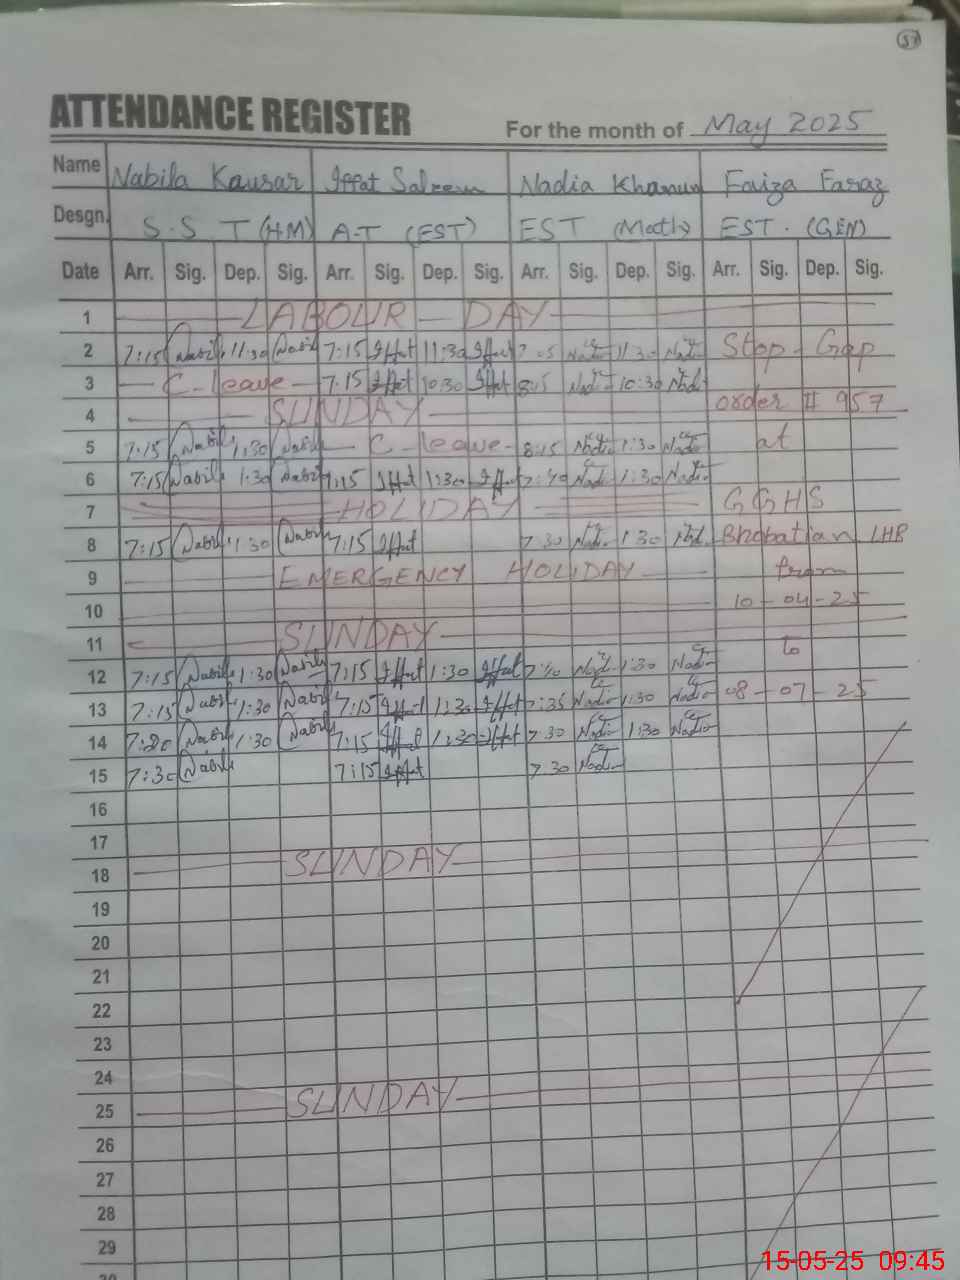 57
ATTENDANCE REGISTER
For the month of May 2025
Name Nabila Kausar Iffat Saleem Nadia Khanum Faiza Faraz
Desgn. S.S T (HM) A.T (EST) EST (Math) EST. (GEN)
Date Arr. Sig. Dep. Sig. Arr. Sig. Dep. Sig. Arr. Sig. Dep. Sig. Arr. Sig. Dep. Sig.
1 LABOUR DAY
2 7:15 Nabila 11:30 Nabila 7:15 Iffat 11:30 Iffat 7:05 Nadia 11:30 Nadia Stop-Gap
3 C-leave 7:15 Iffat 10:30 Iffat 8:15 Nadia 10:30 Nadia
4 SUNDAY order # 957
5 7:15 Nabila 1:30 Nabila C-leave 8:15 Nadia 1:30 Nadia at
6 7:15 Nabila 1:30 Nabila 7:15 Iffat 1:30 Iffat 7:40 Nadia 1:30 Nadia
7 HOLIDAY GGHS
8 7:15 Nabila 1:30 Nabila 7:15 Iffat 7:30 Nadia 1:30 Nadia Bhobatian LHR
9 EMERGENCY HOLIDAY from
10 10-04-25
11 SUNDAY to
12 7:15 Nabila 1:30 Nabila 7:15 Iffat 1:30 Iffat 7:40 Nadia 1:30 Nadia
13 7:15 Nabila 1:30 Nabila 7:15 Iffat 1:30 Iffat 7:35 Nadia 1:30 Nadia 08-07-25
14 7:20 Nabila 1:30 Nabila 7:15 Iffat 1:30 Iffat 7:30 Nadia 1:30 Nadia
15 7:30 Nabila 7:15 Iffat 7:30 Nadia
16
17
18 SUNDAY
19
20
21
22
23
24
25 SUNDAY
26
27
28
29
30
15-05-25 09:45